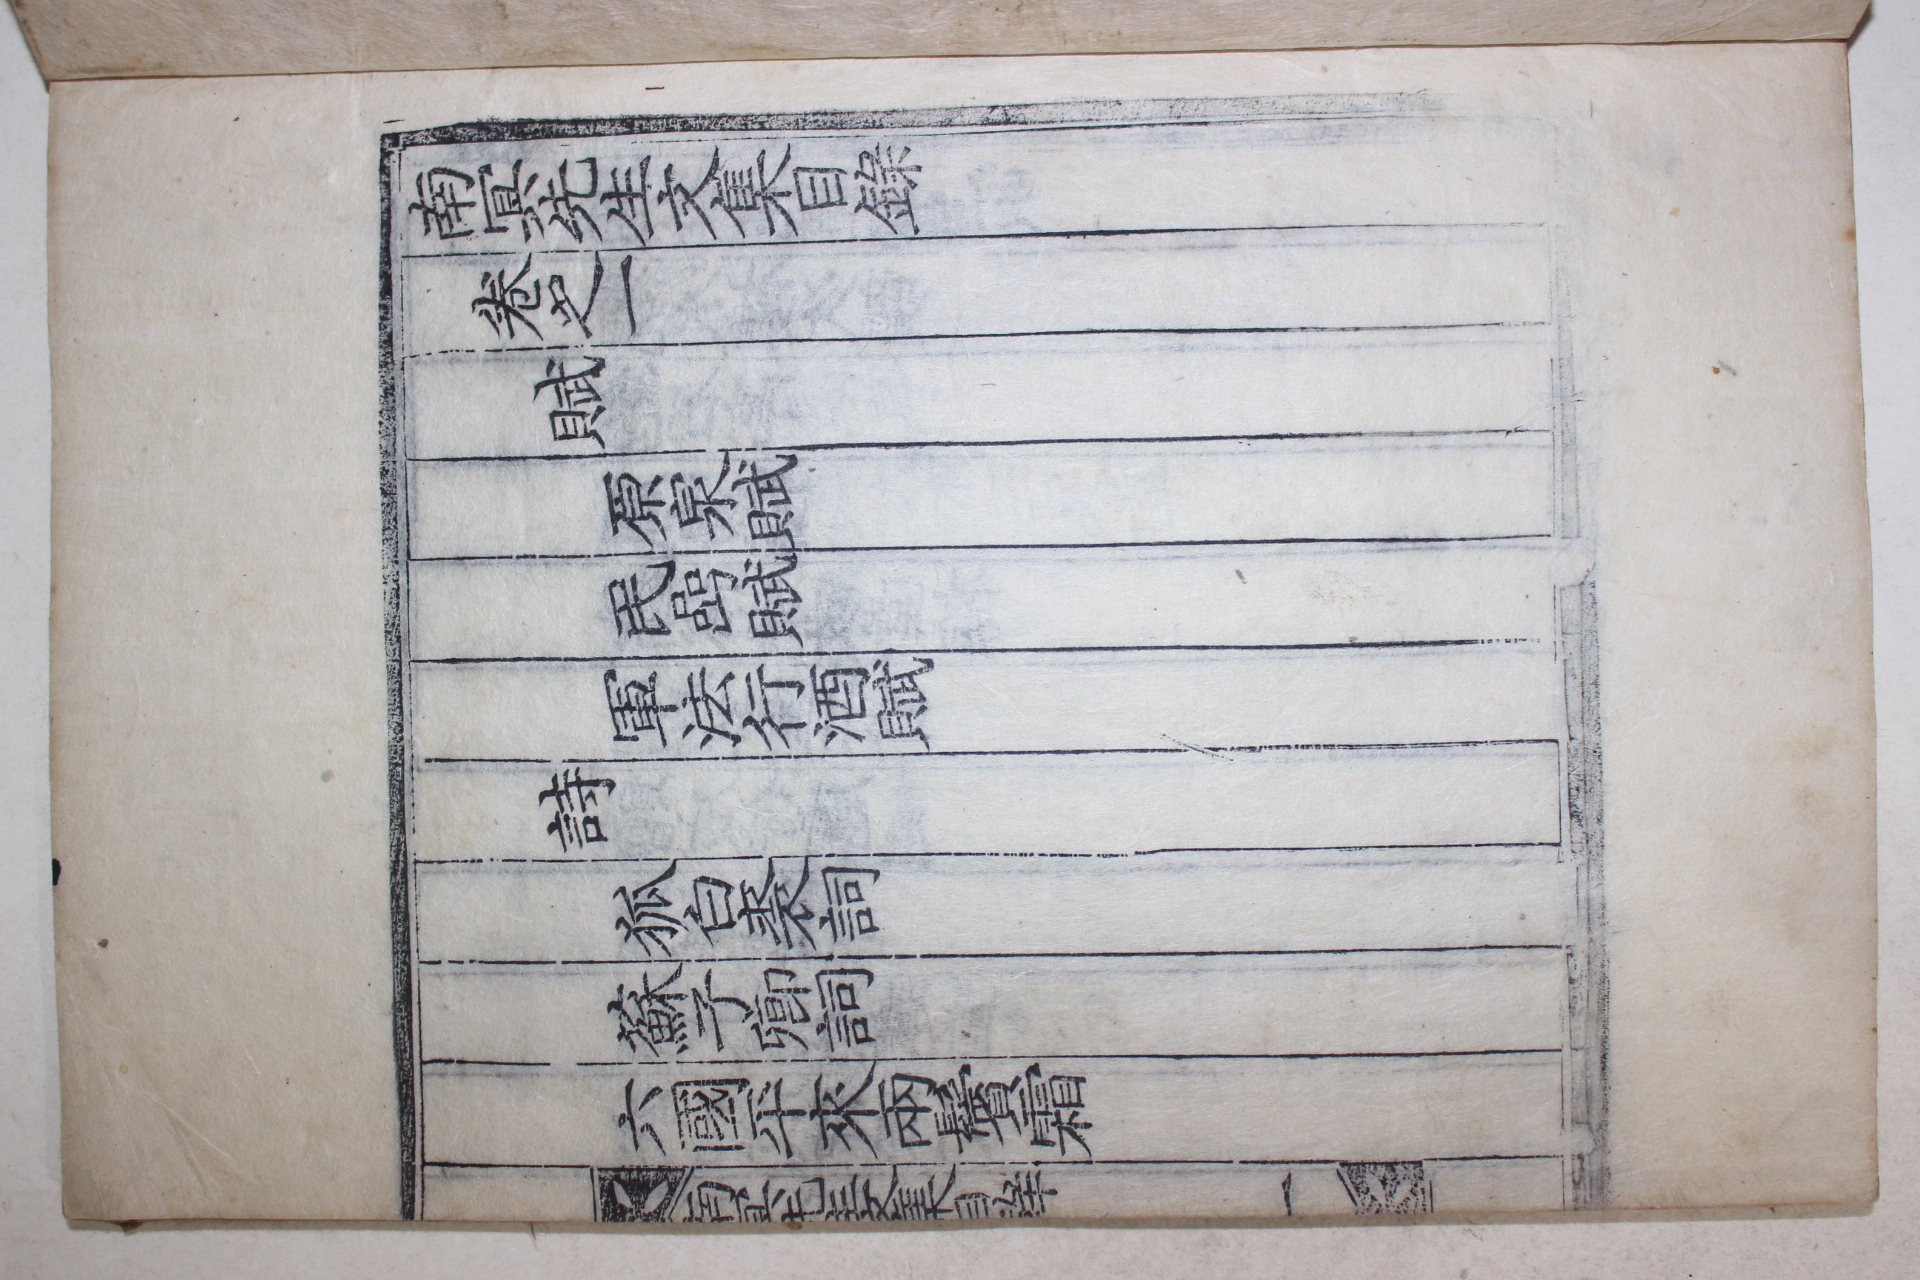 南冥先生文集目錄
卷之一
賦
原泉賦
民嵒賦
軍法行酒賦
詩
狐白裘詞
蘇子卿詞
六國平來兩鬢霜
南冥先生文集目錄
一